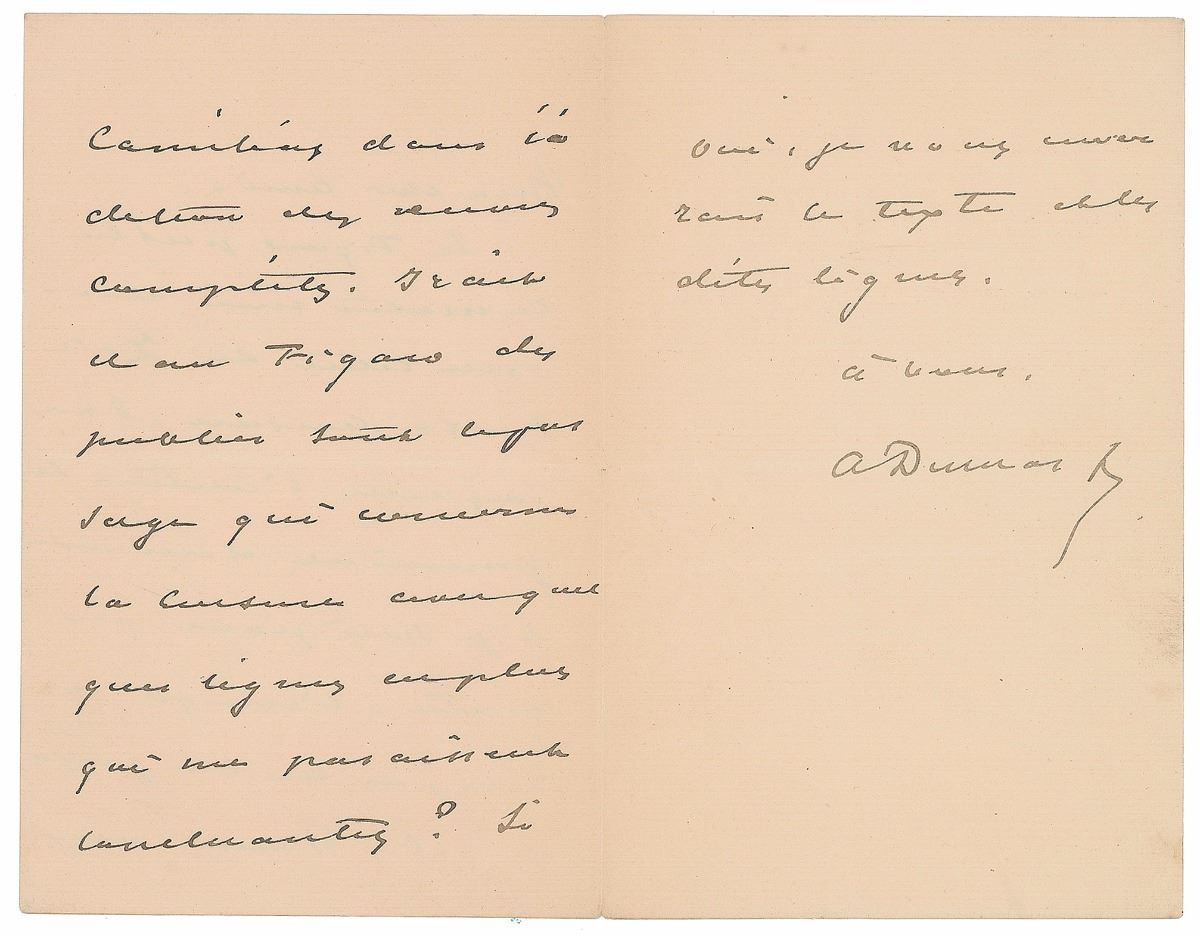 Camélias dans l'é
dition des œuvres
complètes. Irait
il au Figaro de
publier tout le pas
sage qui concerne
la
ques lignes en plus
qui me paraissent
concluantes ? Si
oui, je vous enver
rais le texte des
dites lignes.
à vous.
A Dumas f